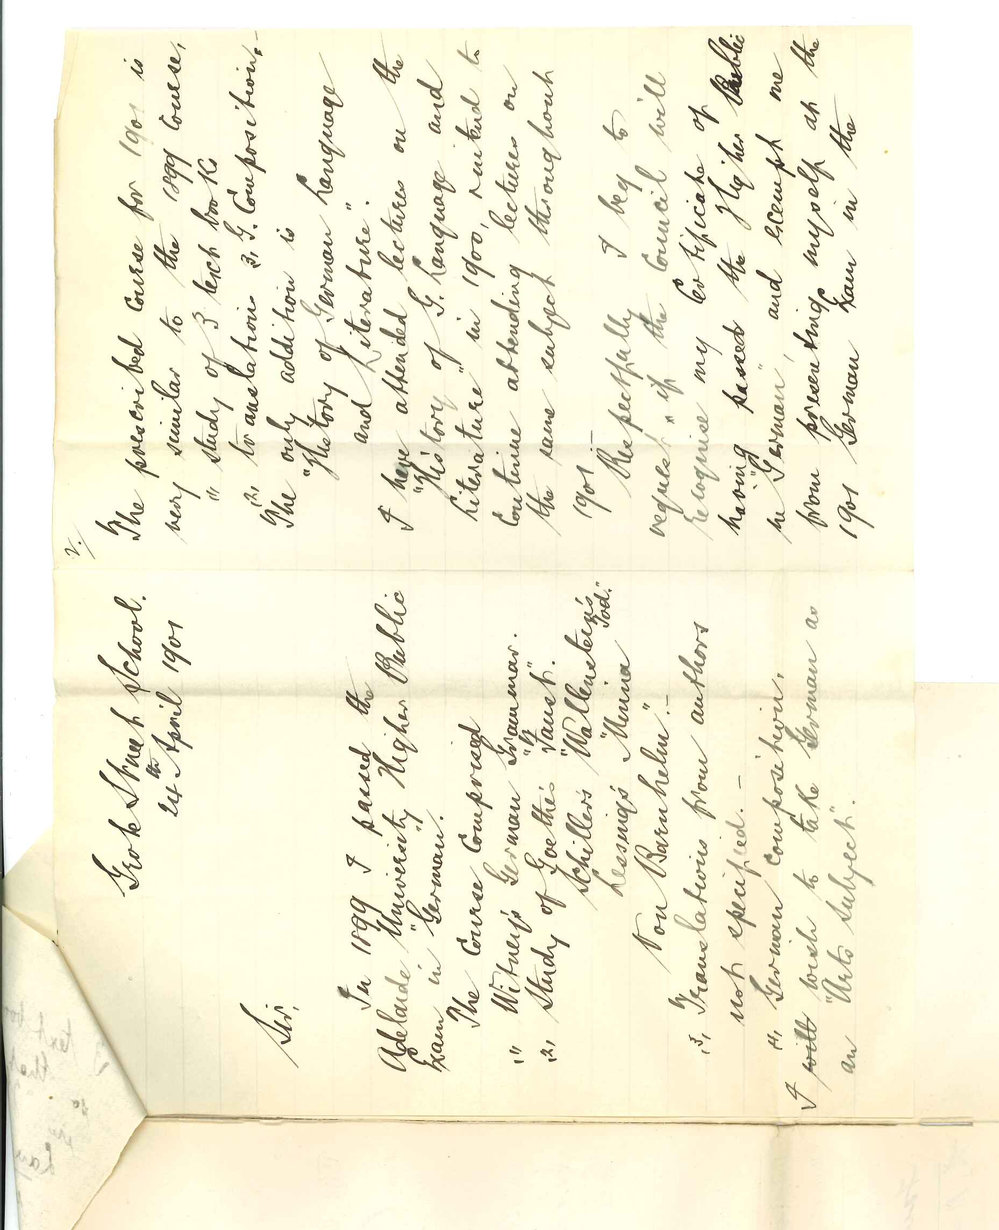 Grote Street School.
24th April 1901
Sir,
In 1899 I passed the
Adelaide University "Higher Public
Exam in "German".
The Course Comprised
"1" Witney's German Grammar.
"2" Study of Goethe's "Faust".
Schiller's "Wallenstein's
Tod."
Lessing's "Minna
Von Barnhelm". —
"3" Translations from authors
not specified. —
"4" German Composition.
I will wish to take German as
an "Arts Subject".
2/
The prescribed Course for 1901 is
very similar to the 1899 Course,
"1" study of 3 text books
"2" translation 3, G. Composition. —
The only addition is
"History of German Language
and Literature".
I have attended lectures on the
"History of G. Language and
Literature" in 1900, & intend to
Continue attending lectures on
the same subject throughout
1901 —
Respectfully I beg to
request if the Council will
recognise my Certificate of
having passed the Higher Public
in "German", and exempt me
from presenting myself at the
1901 German Exam in the